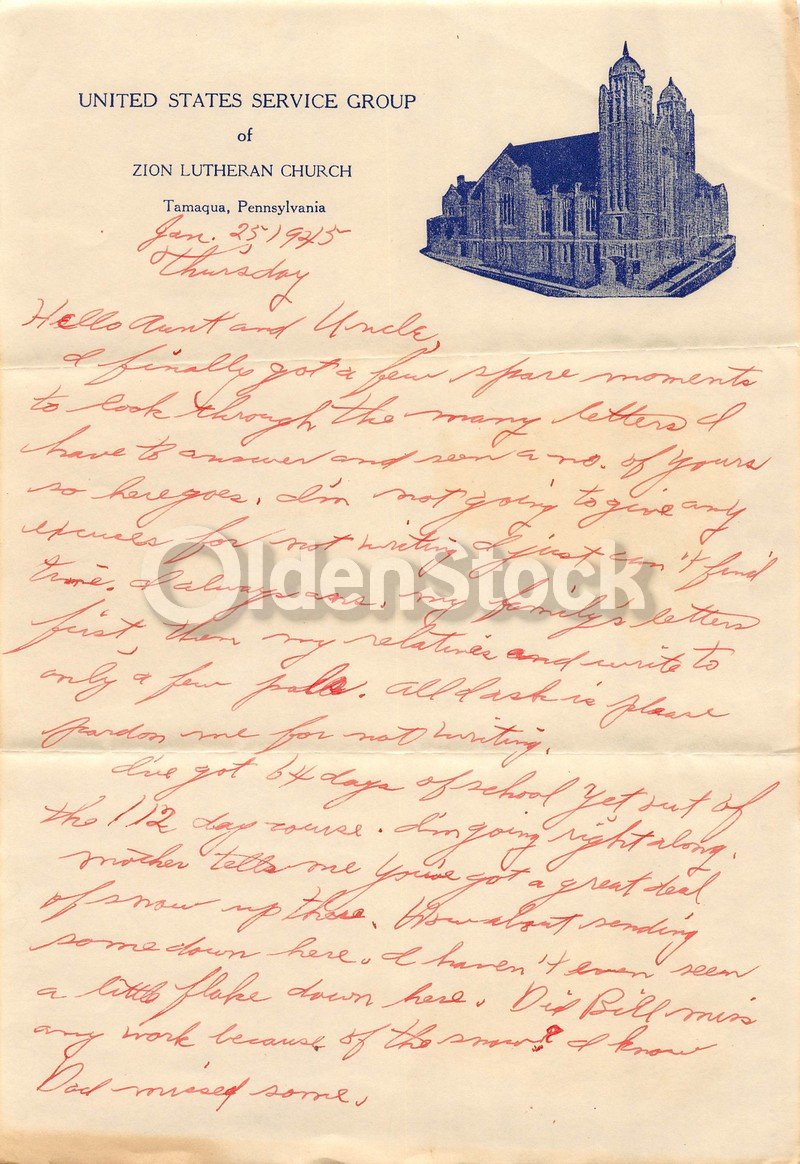 UNITED STATES SERVICE GROUP
of
ZION LUTHERAN CHURCH
Tamaqua, Pennsylvania
Jan. 25, 1945
Thursday
Hello Aunt and Uncle,
I finally got a few spare moments
to look through the many letters I
have to answer and seen a no. of yours
so here goes. I'm not going to give any
excuses for not writing I just can't find
time. I always ans. my family's letters
first, then my relatives and write to
only a few pals. All I ask is please
pardon me for not writing.
I've got 64 days of school yet out of
the 112 day course. I'm going right along.
Mother tells me you've got a great deal
of snow up there. How about sending
some down here. I haven't even seen
a little flake down here. Did Bill miss
any work because of the snow? I know
Dad missed some.
OldenStock